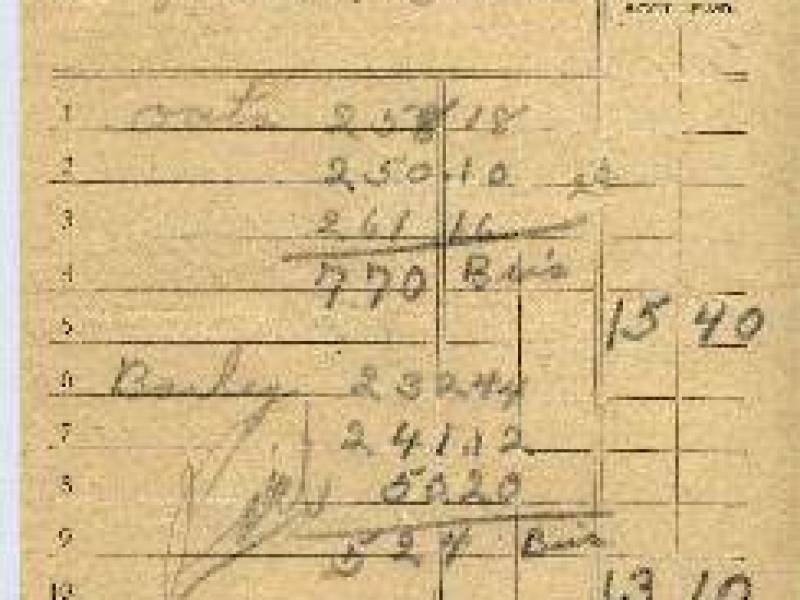 ACCT. FWD.
1 oats 258 18
2 250.10
3 261 16
4 770 Bu's
5 15 40
6 Barley 232 44
7 241.12
8 50 20
9 524 Bu's
10 13 10